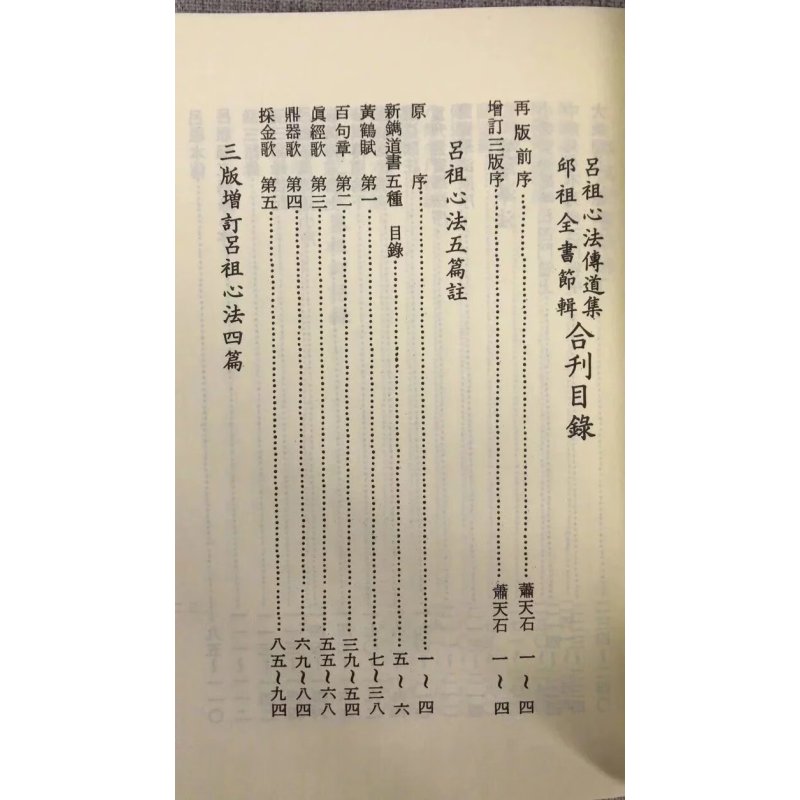 呂祖心法傳道集
邱祖全書節輯
合刊目錄
再版前序……蕭天石 一～四
增訂三版序……蕭天石 一～四
呂祖心法五篇註
原序……一～四
新鐫道書五種 目錄……五～六
黃鶴賦 第一……七～三八
百句章 第二……三九～五四
眞經歌 第三……五五～六八
鼎器歌 第四……六九～八四
採金歌 第五……八五～九四
三版增訂呂祖心法四篇